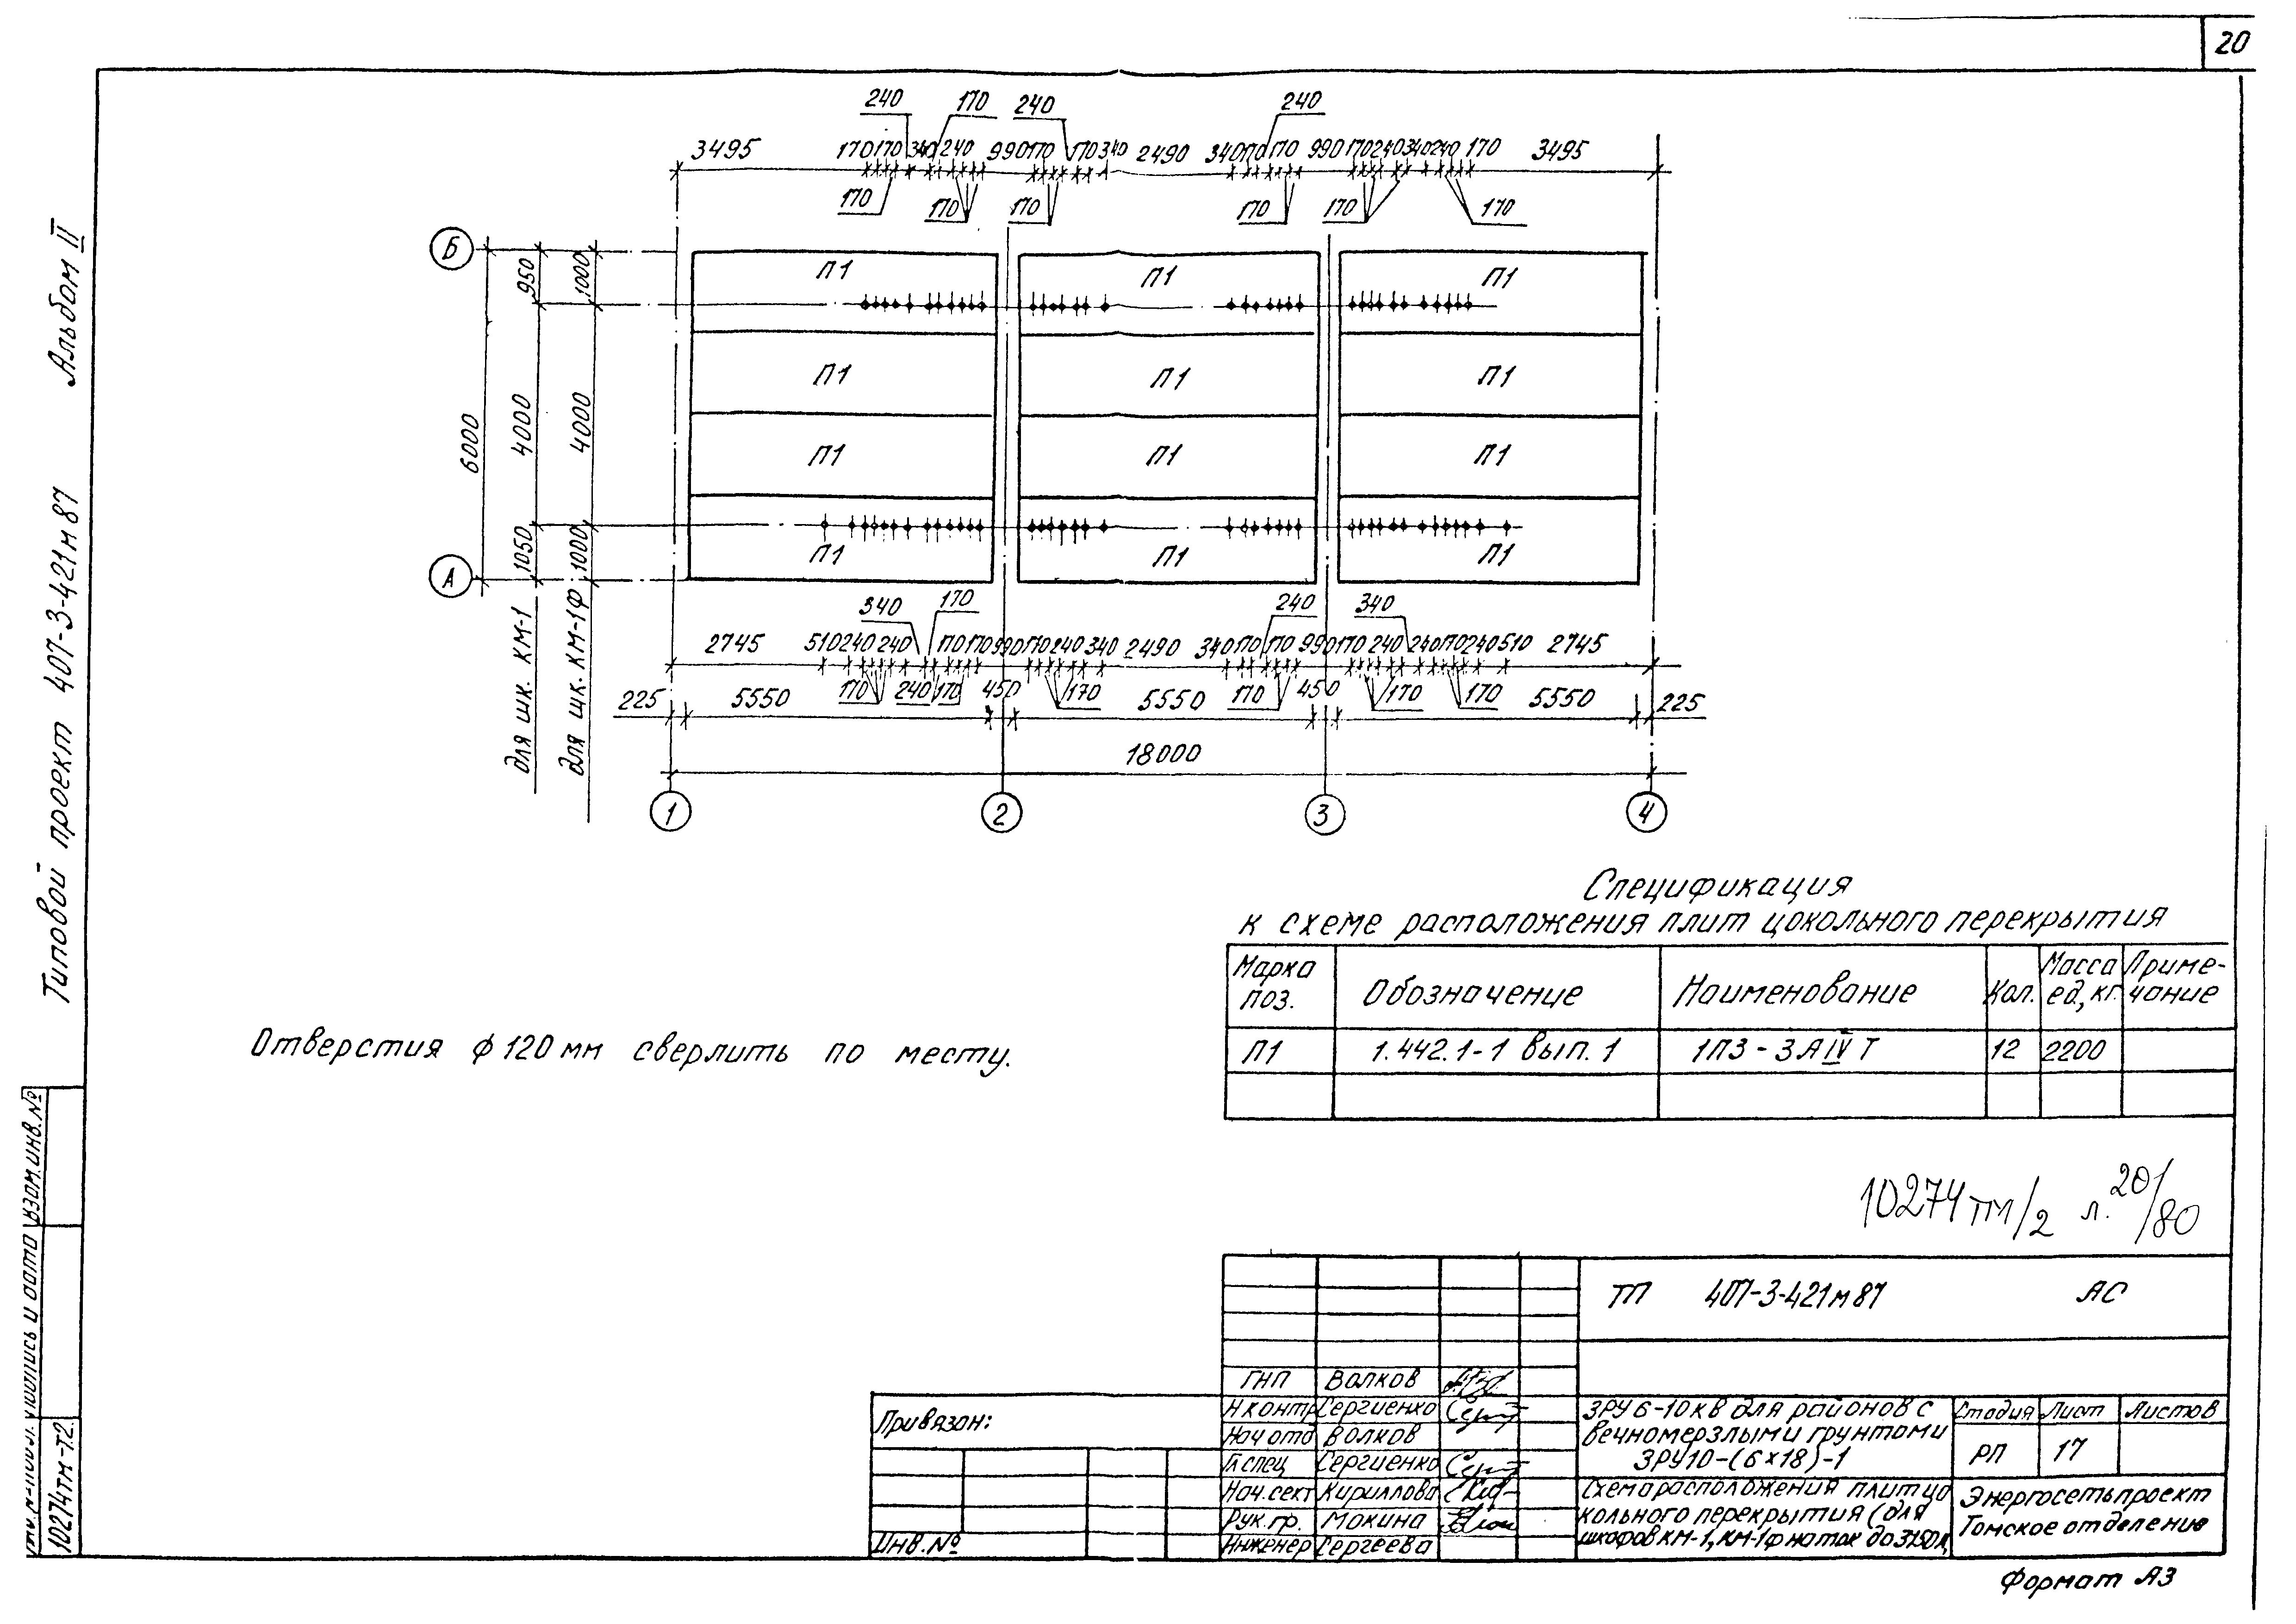 20
Альбом II
Типовой проект 407-3-421м87
240 170 240 240
3495 170 170 340 240 990 170 170 340 2490 340 170 170 990 170 240 340 240 170 3495
170 170 170 170 170 170
Б
950 1000
П1 П1 П1
6000 4000 4000
П1 П1 П1
П1 П1 П1
1050 1000
А
П1 П1 П1
для шк. КМ-1
для шк. КМ-1Ф
340 170 240 340
2745 510 240 240 170 170 990 170 240 340 2490 340 170 170 990 170 240 240 170 240 510 2745
170 240 170 450 170 170 450 170 170
225 5550 5550 5550 225
18000
1 2 3 4
Спецификация
к схеме расположения плит цокольного перекрытия
Марка поз. Обозначение Наименование Кол. Масса ед, кг. Приме-чание
П1 1.442.1-1 вып. 1 1П3-3АIVТ 12 2200
Отверстия ф 120 мм сверлить по месту.
10274тм/2 л. 20/80
ТП 407-3-421м87 АС
ГНП Волков
Н контр Сергиенко
Нач отд Волков
Гл спец Сергиенко
Нач. сект Кириллова
Рук. гр. Мокина
Инженер Сергеева
Привязан:
Инв. №
ЗРУ 6-10кв для районов с
вечномерзлыми грунтами
ЗРУ10-(6×18)-1
Стадия Лист Листов
РП 17
Схема расположения плит цо
кольного перекрытия (для
шкафов КМ-1, КМ-1ф на ток до 3150А
Энергосетьпроект
Томское отделение
Формат А3
Взам. инв. №
Подпись и дата
10274тм-т2.